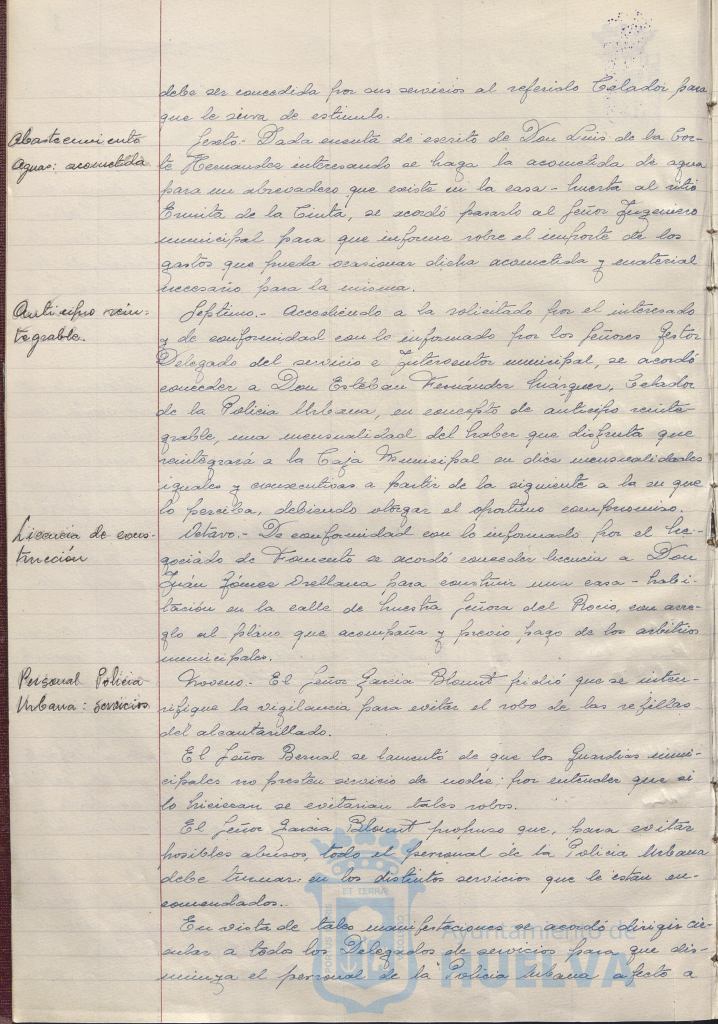 debe ser concedida por sus servicios al referido Celador, para
que le sirva de estimulo.
Abastecimiento
Aguas: acometida
Sexto.- Dada cuenta de escrito de Don Luis de la Cor-
te Hernandez interesando se haga la acometida de agua
para un abrevadero que existe en la casa-huerta al sitio
Ermita de la Cinta, se acordó pasarlo al Señor Ingeniero
municipal para que informe sobre el importe de los
gastos que pueda ocasionar dicha acometida y material
necesario para la misma.
Anticipo rein-
tegrable.
Septimo.- Accediendo a lo solicitado por el interesado
y de conformidad con lo informado por los Señores Gestor
Delegado del servicio e Interventor municipal, se acordó
conceder a Don Esteban Fernández Suárez, Celador
de la Policia Urbana, en concepto de anticipo reinte-
grable, una mensualidad del haber que disfruta que
reintegrará a la Caja Municipal en diez mensualidades
iguales y consecutivas a partir de la siguiente a la en que
lo perciba, debiendo otorgar el oportuno compromiso.
Licencia de cons-
trucción
Octavo.- De conformidad con lo informado por el Ne-
gociado de Fomento se acordó conceder licencia a Don
Juán Gómez Orellana para construir una casa-habi-
tación en la calle de Nuestra Señora del Rocio, con arre-
glo al plano que acompaña y previo pago de los arbitrios
municipales.
Personal Policia
Urbana: servicios
Noveno.- El Señor Garcia Blount pidió que se inten-
sifique la vigilancia para evitar el robo de las rejillas
del alcantarillado.
El Señor Bernal se lamentó de que los Guardias muni-
cipales no presten servicio de noche: por entender que si
lo hicieran se evitarian tales robos.
El Señor Garcia Blount propuso que, para evitar
posibles abusos, todo el personal de la Policia Urbana
debe turnar en los distintos servicios que le estan en-
comendados.
En vista de tales manifestaciones se acordó dirigir cir-
cular a todos los Delegados de servicios para que dis-
minuya el personal de la Policia Urbana afecto a
Ayuntamiento de
HUELVA